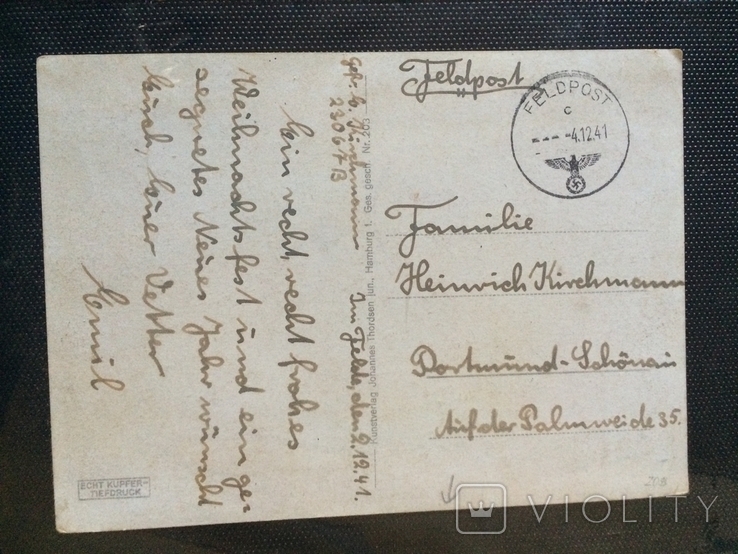 Feldpost
FELDPOST
c
--- -4.12.41
Familie
Heinrich Kirchmann
Dortmund-Schönau
Auf der Palmweide 35.
Gefr. E. Kirchmann
23067B
Im Felde, den 2.12.41.
Ein recht, recht frohes
Weihnachtsfest und ein ge-
segnetes Neues Jahr wünscht
Euch, Euer Vetter
Emil
Kunstverlag Johannes Thordsen jun., Hamburg 1. Ges. gesch. Nr. 203
ECHT KUPFER-
TIEFDRUCK
VIOLITY